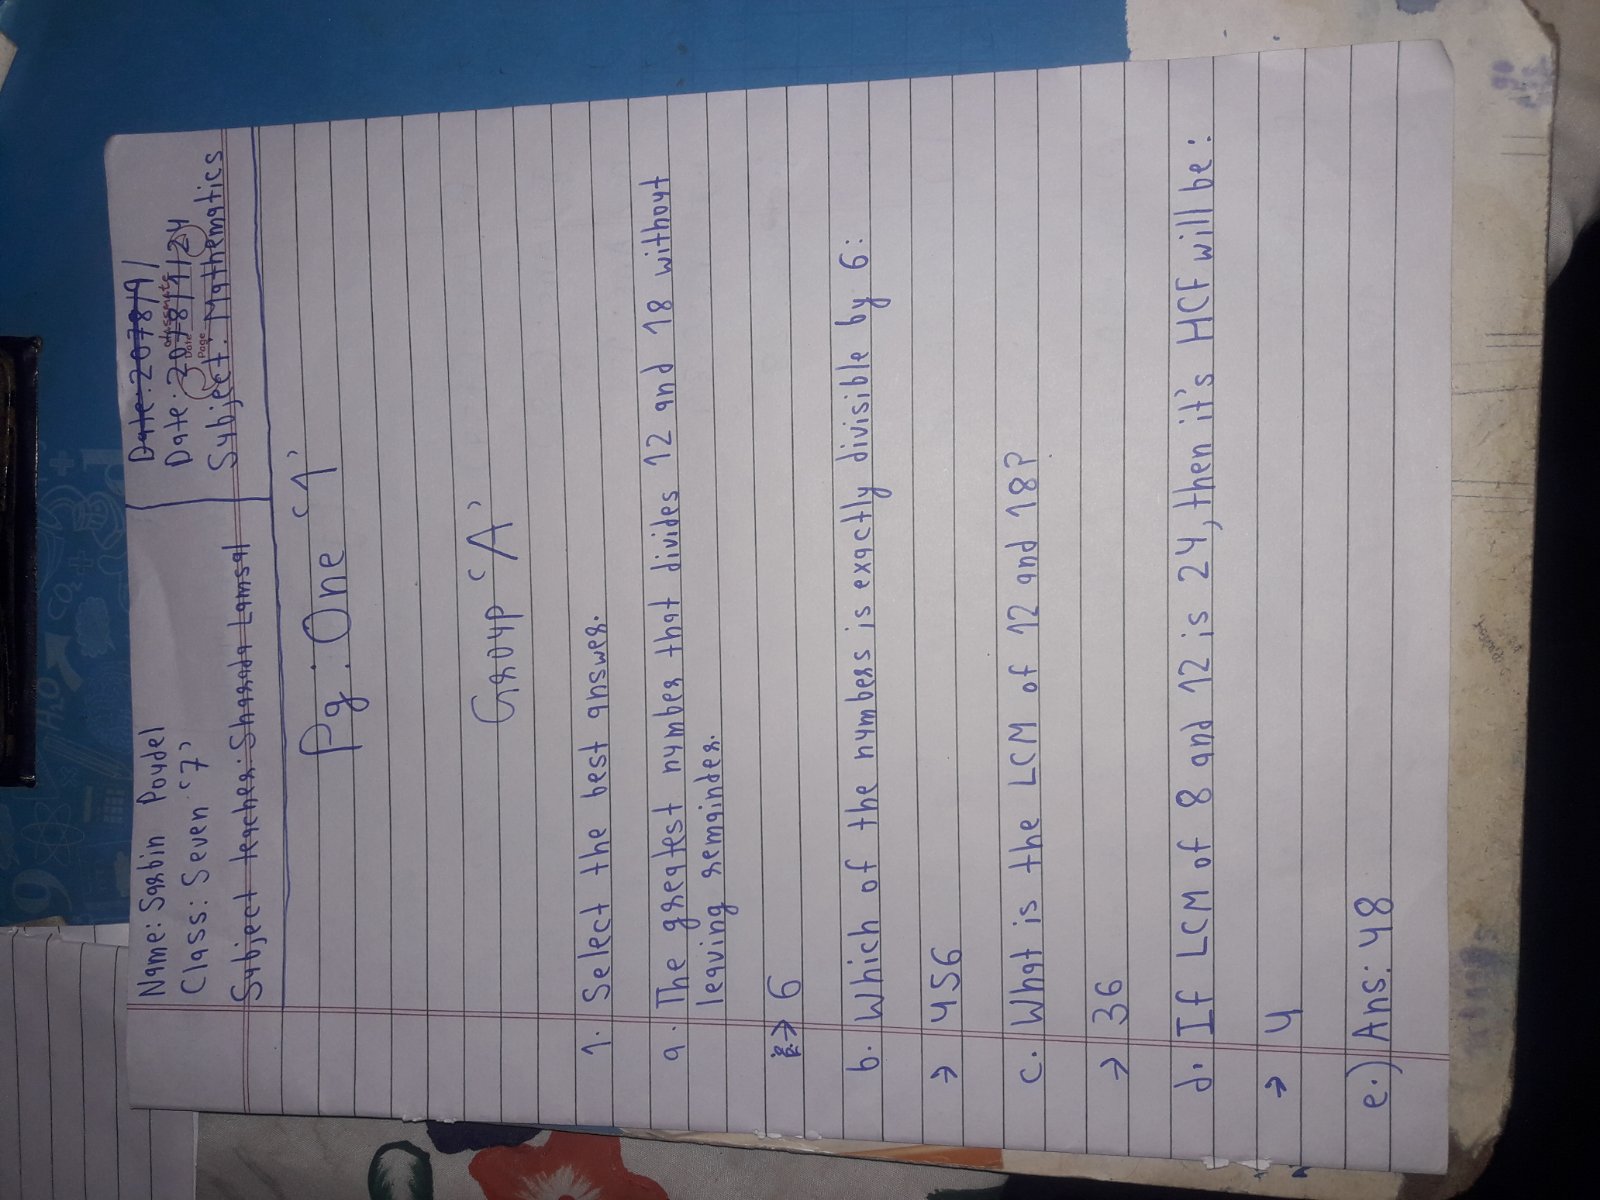 Name: Sarbin Poudel
Class: Seven '7'
Subject teacher: Sharada Lamsal
Date: 2078/9/
Date: 2078/9/24
classmate
Date
Page
Subject: Mathematics
Pg: One '1'
Group 'A'
1. Select the best answer.
a. The greatest number that divides 12 and 18 without
leaving remainder.
→ 6
b. Which of the numbers is exactly divisible by 6:
→ 456
c. What is the LCM of 12 and 18?
→ 36
d. If LCM of 8 and 12 is 24, then it's HCF will be:
→ 4
e.) Ans: 48
H2O
CO2
9